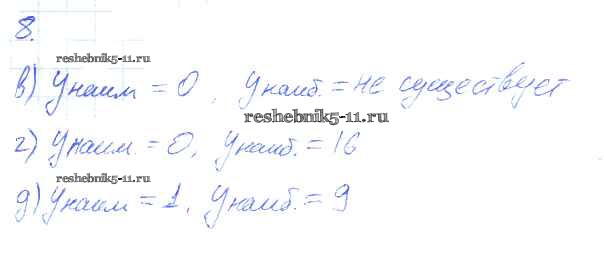 8.
reshebnik5-11.ru
в) Yнаим = 0, Yнаиб. = не существует
reshebnik5-11.ru
г) Yнаим. = 0, Yнаиб. = 16
reshebnik5-11.ru
д) Yнаим = 1, Yнаиб. = 9